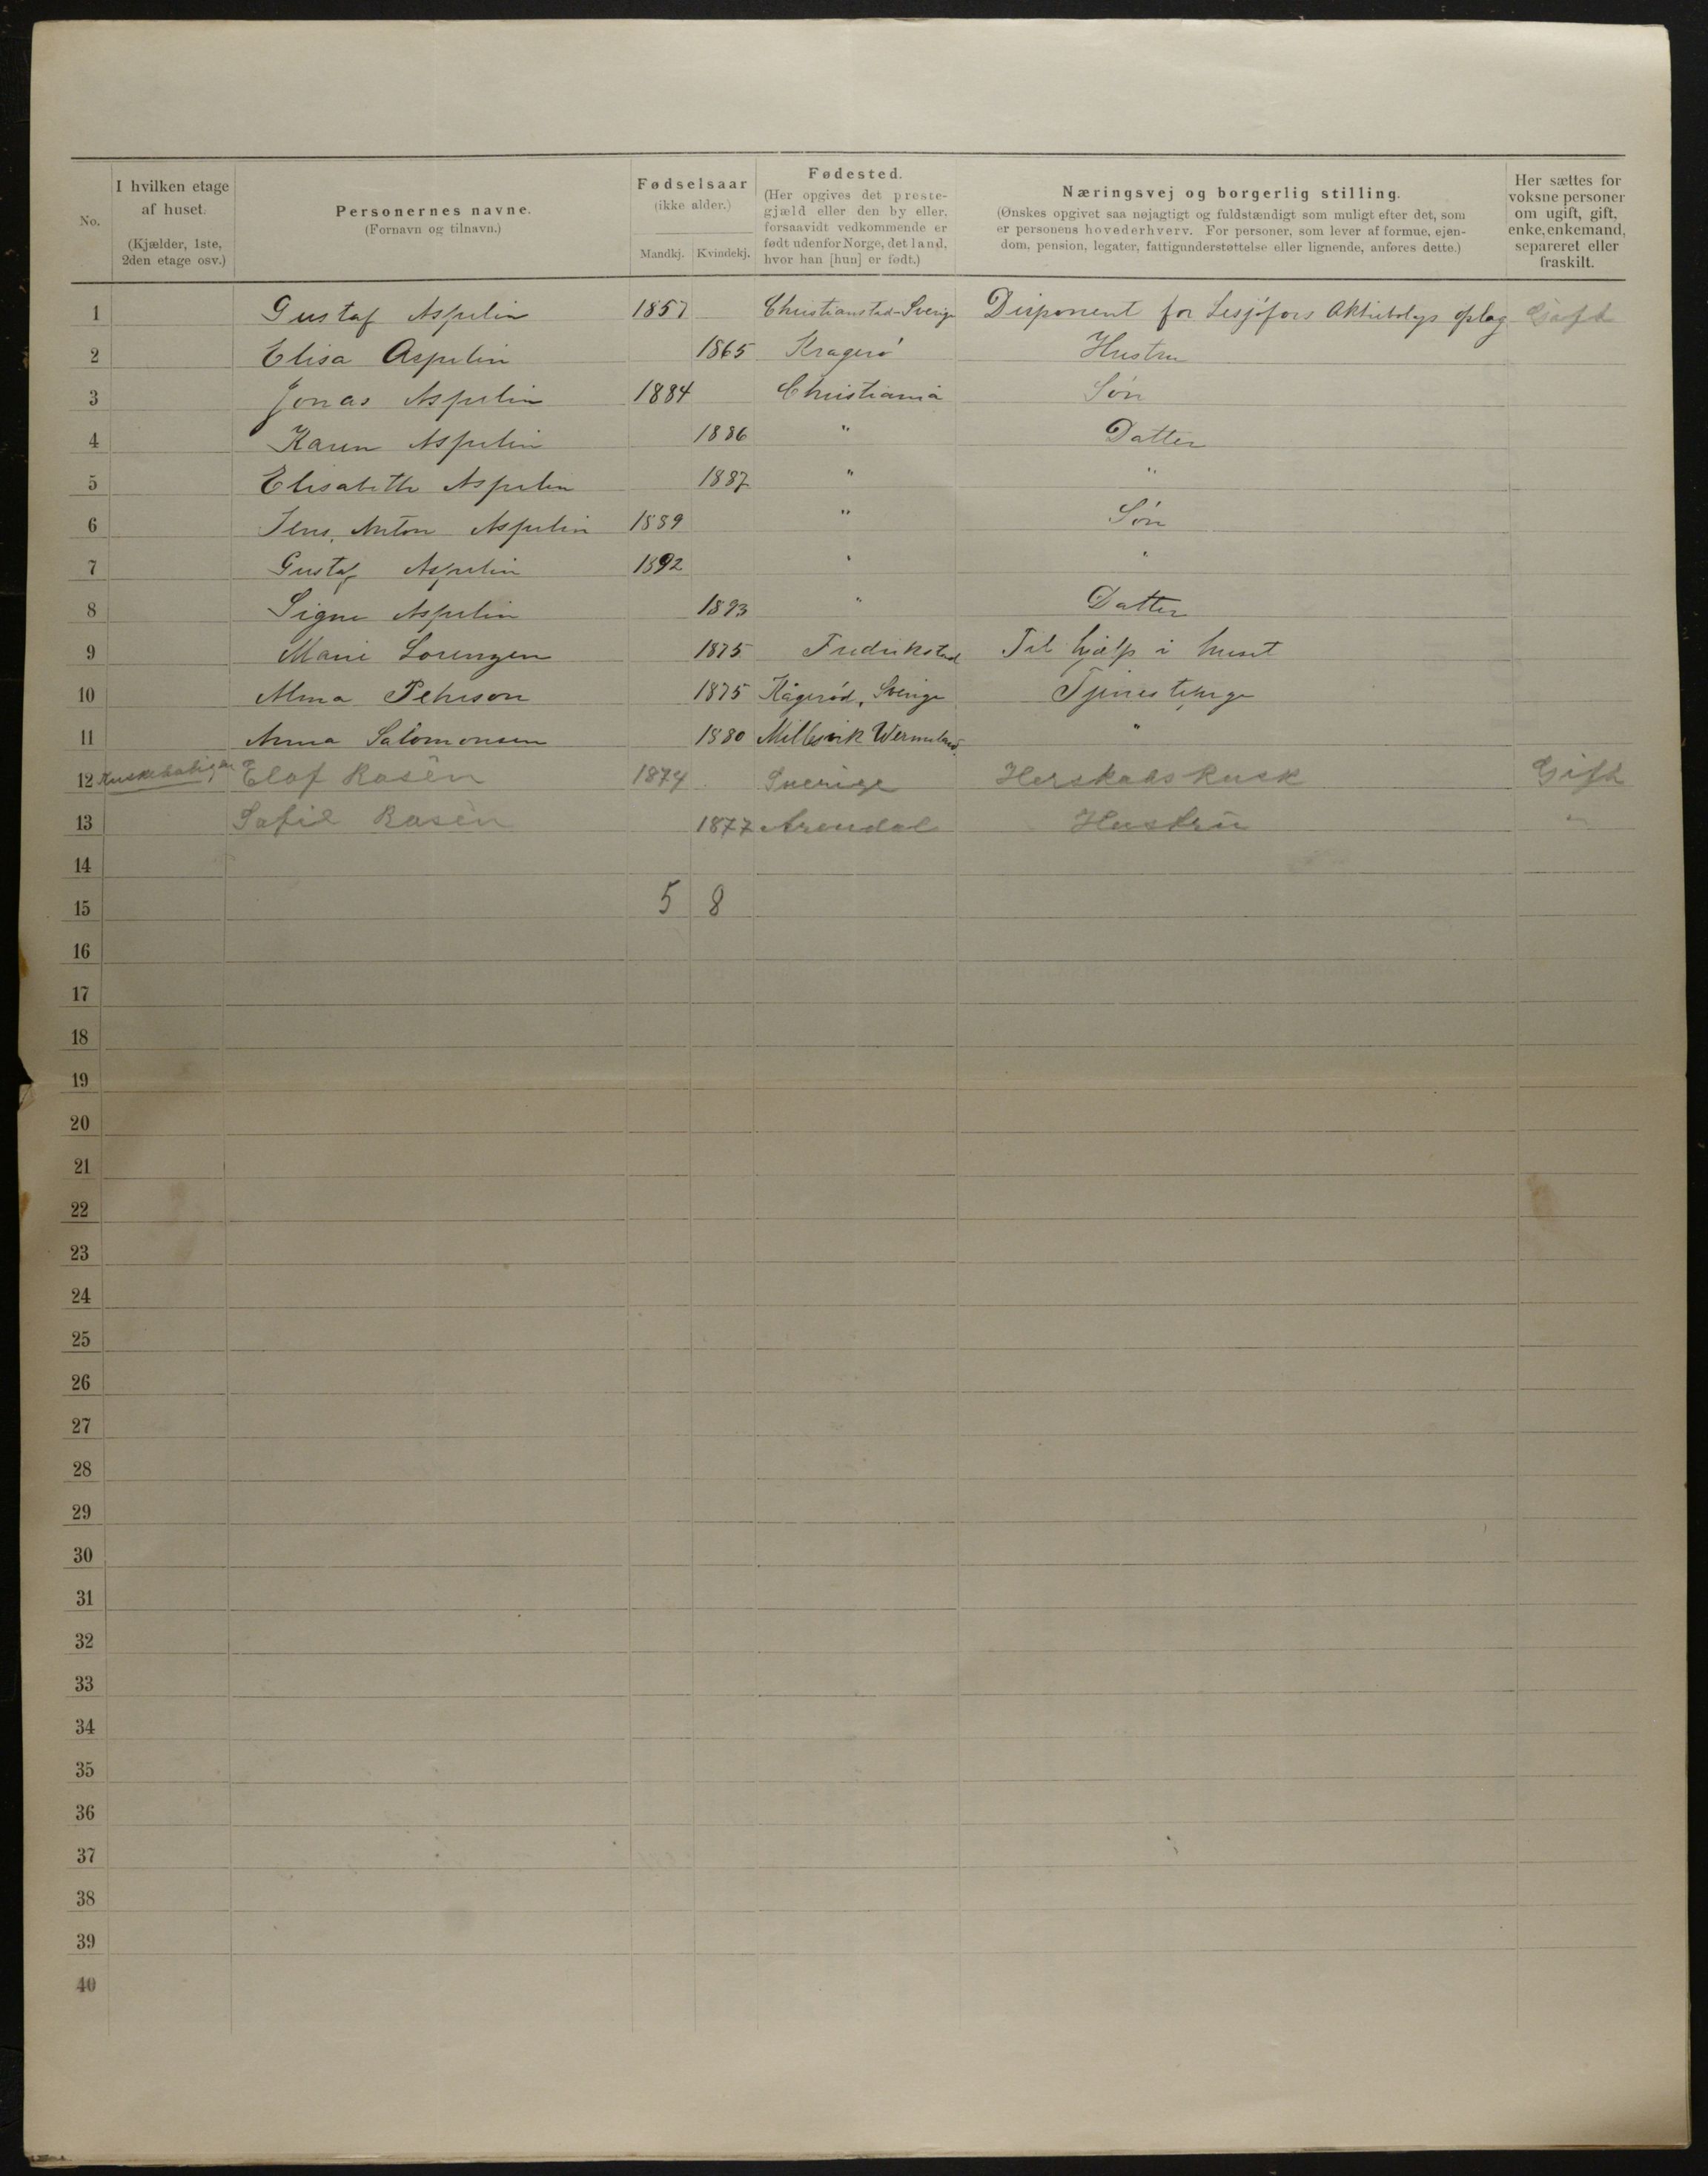 No.
I hvilken etage af huset. (Kjælder, 1ste, 2den etage osv.)
Personernes navne. (Fornavn og tilnavn.)
Fødselsaar (ikke alder.) Mandkj. Kvindekj.
Fødested. (Her opgives det prestegjæld eller den by eller, forsaavidt vedkommende er født udenfor Norge, det land, hvor han [hun] er født.)
Næringsvej og borgerlig stilling. (Ønskes opgivet saa nøjagtigt og fuldstændigt som muligt efter det, som er personens hovederhverv. For personer, som lever af formue, ejendom, pension, legater, fattigunderstøttelse eller lignende, anføres dette.)
Her sættes for voksne personer om ugift, gift, enke, enkemand, separeret eller fraskilt.
1 Gustaf Aspelin 1857 Christianstad-Sverige Disponent for Lesjöfors Aktiebolags oplag Gift
2 Elisa Aspelin 1865 Kragerø Hustru
3 Jonas Aspelin 1884 Christiania Søn
4 Karen Aspelin 1886 " Datter
5 Elisabeth Aspelin 1887 " "
6 Jens Anton Aspelin 1889 " Søn
7 Gustaf Aspelin 1892 " "
8 Signe Aspelin 1893 " Datter
9 Marie Lorenzen 1875 Fredrikstad Til hjælp i huset
10 Alma Pehrson 1875 Kågeröd, Sverige Tjenestepige
11 Anna Salomonsen 1880 Millesvik Wermland "
12 Kuskeboligen Elof Rosèn 1874 Sverige Herskabskusk Gift
13 Sofie Rosèn 1877 Arendal Hustru "
14
15 5 8
16
17
18
19
20
21
22
23
24
25
26
27
28
29
30
31
32
33
34
35
36
37
38
39
40